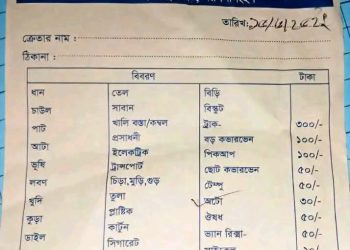 তারিখ:
ক্রেতার নাম :
ঠিকানা :
বিবরণ টাকা
ধান তেল বিড়ি
চাউল সাবান বিস্কুট
পাট খালি বস্তা/কম্বল ট্রাক- ৩০০/-
আটা প্রসাধনী বড় কভারভেন ১০০/-
ভূষি ইলেকট্রিক পিকআপ ১০০/-
লবণ ট্রান্সপোর্ট ছোট কভারভেন ৫০/-
খুদি চিড়া,মুড়ি,গুড় টেম্পু ৫০/-
কুড়া তুলা অটো ৩০/-
ডাইল প্লাষ্টিক ঔষধ ৫০/-
কার্টুন ভ্যান রিক্সা- ২০/-
সিগারেট